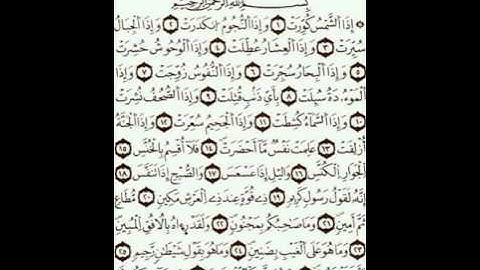 بِسْمِ اللَّهِ الرَّحْمَٰنِ الرَّحِيمِ
إِذَا الشَّمْسُ كُوِّرَتْ ١ وَإِذَا النُّجُومُ انكَدَرَتْ ٢ وَإِذَا الْجِبَالُ
سُيِّرَتْ ٣ وَإِذَا الْعِشَارُ عُطِّلَتْ ٤ وَإِذَا الْوُحُوشُ حُشِرَتْ
٥ وَإِذَا الْبِحَارُ سُجِّرَتْ ٦ وَإِذَا النُّفُوسُ زُوِّجَتْ ٧ وَإِذَا
الْمَوْءُۥدَةُ سُئِلَتْ ٨ بِأَيِّ ذَنبٍ قُتِلَتْ ٩ وَإِذَا الصُّحُفُ نُشِرَتْ
١٠ وَإِذَا السَّمَاءُ كُشِطَتْ ١١ وَإِذَا الْجَحِيمُ سُعِّرَتْ ١٢ وَإِذَا الْجَنَّةُ
أُزْلِفَتْ ١٣ عَلِمَتْ نَفْسٌ مَّا أَحْضَرَتْ ١٤ فَلَا أُقْسِمُ بِالْخُنَّسِ ١٥
الْجَوَارِ الْكُنَّسِ ١٦ وَالَّيْلِ إِذَا عَسْعَسَ ١٧ وَالصُّبْحِ إِذَا تَنَفَّسَ ١٨
إِنَّهُ لَقَوْلُ رَسُولٍ كَرِيمٍ ١٩ ذِي قُوَّةٍ عِندَ ذِي الْعَرْشِ مَكِينٍ ٢٠ مُّطَاعٍ
ثَمَّ أَمِينٍ ٢١ وَمَا صَاحِبُكُم بِمَجْنُونٍ ٢٢ وَلَقَدْ رَءَاهُ بِالْأُفُقِ الْمُبِينِ
٢٣ وَمَا هُوَ عَلَى الْغَيْبِ بِضَنِينٍ ٢٤ وَمَا هُوَ بِقَوْلِ شَيْطَٰنٍ رَّجِيمٍ ٢٥